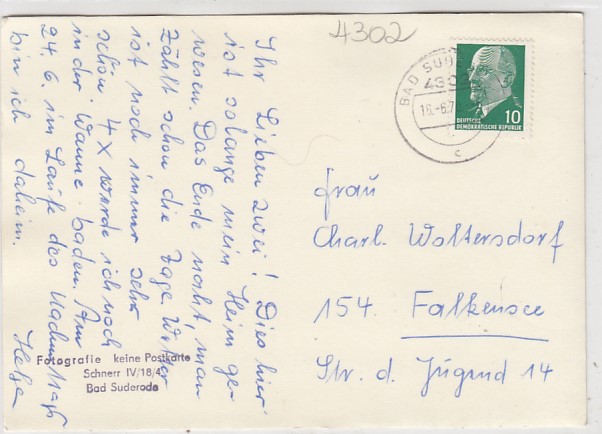 4302
BAD SUDE
4302
16.-6.7
c
10
DEUTSCHE
DEMOKRATISCHE REPUBLIK
Ihr Lieben zwei! Dies hier
ist solange mein Heim ge-
wesen. Das Ende naht, man
zählt schon die Tage. Wetter
ist noch immer sehr
schön. 4 x werde ich noch
in der Wanne baden. Am
24. 6. im Laufe des Nachmittags
bin ich daheim.
Helga
Frau
Charl. Woltersdorf
154. Falkensee
Str. d. Jugend 14
Fotografie keine Postkarte
Schnerr IV/18/4
Bad Suderode